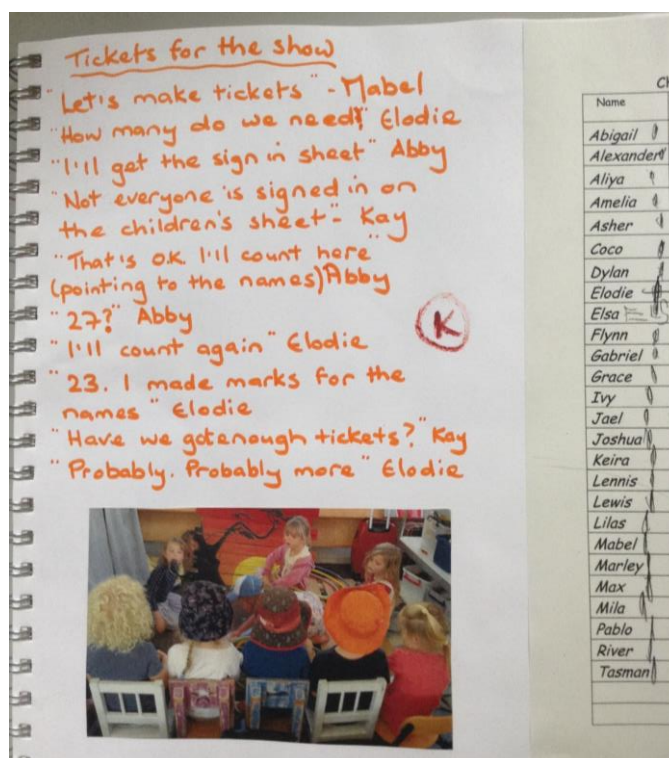 Tickets for the show
"Let's make tickets" - Mabel
"How many do we need?" Elodie
"I'll get the sign in sheet" Abby
"Not everyone is signed in on
the children's sheet" - Kay
"That's o.k. I'll count here"
(pointing to the names) Abby
"27?" Abby
"I'll count again" Elodie
"23. I made marks for the
names" Elodie
"Have we got enough tickets?" Kay
"Probably. Probably more" Elodie
K
Ch
Name
Abigail
Alexander
Aliya
Amelia
Asher
Coco
Dylan
Elodie
Elsa
Flynn
Gabriel
Grace
Ivy
Jael
Joshua
Keira
Lennis
Lewis
Lilas
Mabel
Marley
Max
Mila
Pablo
River
Tasman